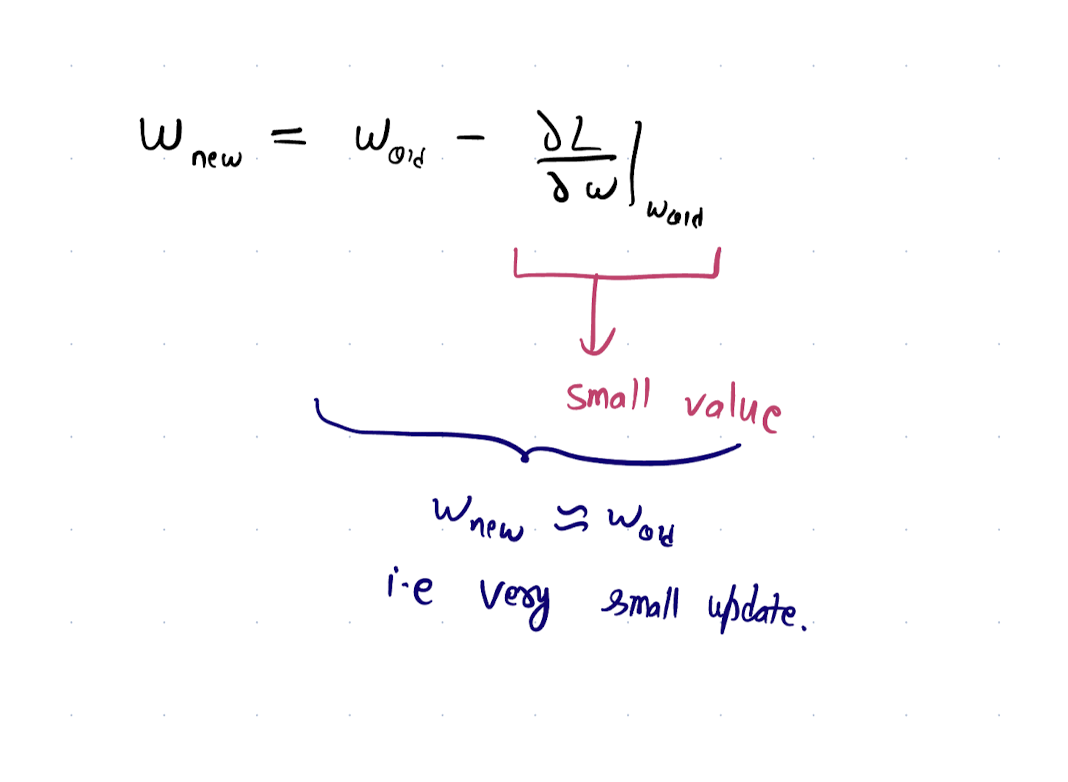 w_new = w_old - ∂L/∂w |_w_old
small value
w_new ≈ w_old
i.e very small update.